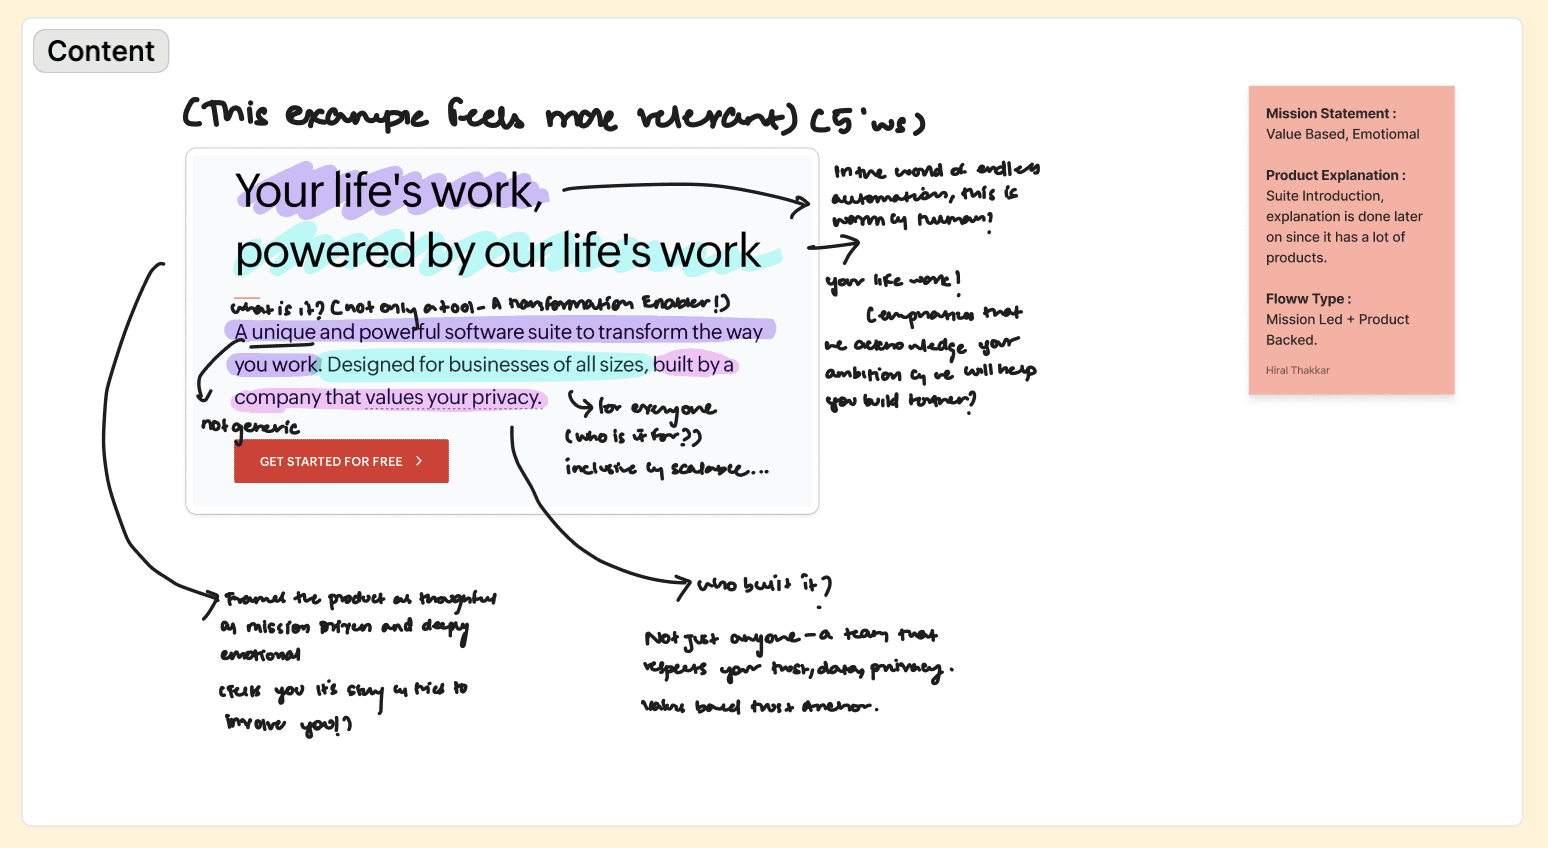 Content
(This example feels more relevant) (5'ws)
Your life's work,
powered by our life's work
what is it? (not only a tool - A Transformation Enabler!)
A unique and powerful software suite to transform the way
you work. Designed for businesses of all sizes, built by a
company that values your privacy.
not generic
GET STARTED FOR FREE
for everyone
(who is it for?)
inclusive & scalable...
In the world of endless
automation, this is
warm & human?
your life work!
(emphasises that
we acknowledge your
ambition & we will help
you build further?
Frames the product as thoughtful
as mission driven and deeply
emotional
(tells you it's story & tries to
involve you!?)
who built it?
Not just anyone - a team that
respects your trust, data, privacy.
value based trust Anchor.
Mission Statement :
Value Based, Emotiomal
Product Explanation :
Suite Introduction,
explanation is done later
on since it has a lot of
products.
Floww Type :
Mission Led + Product
Backed.
Hiral Thakkar